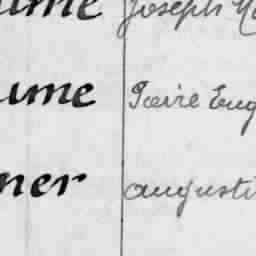 ume Joseph
ume Pierre Eug
ner augusti